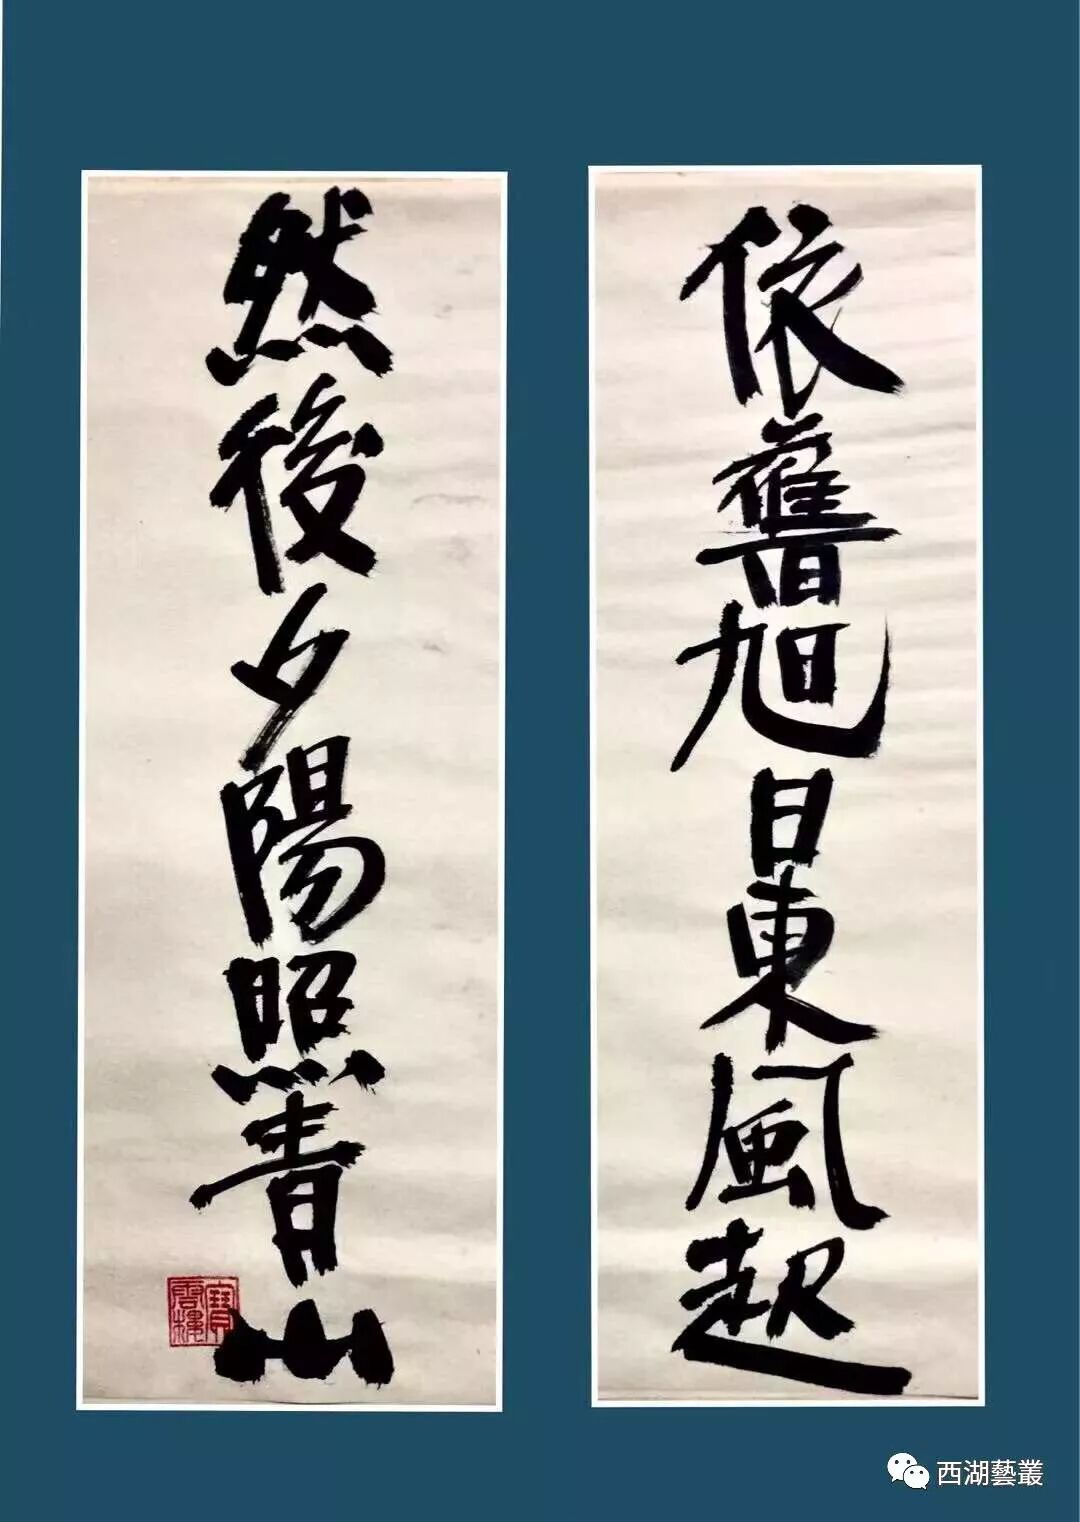 依舊旭日東風起
然後夕陽照青山
寶雲樓
西湖藝叢